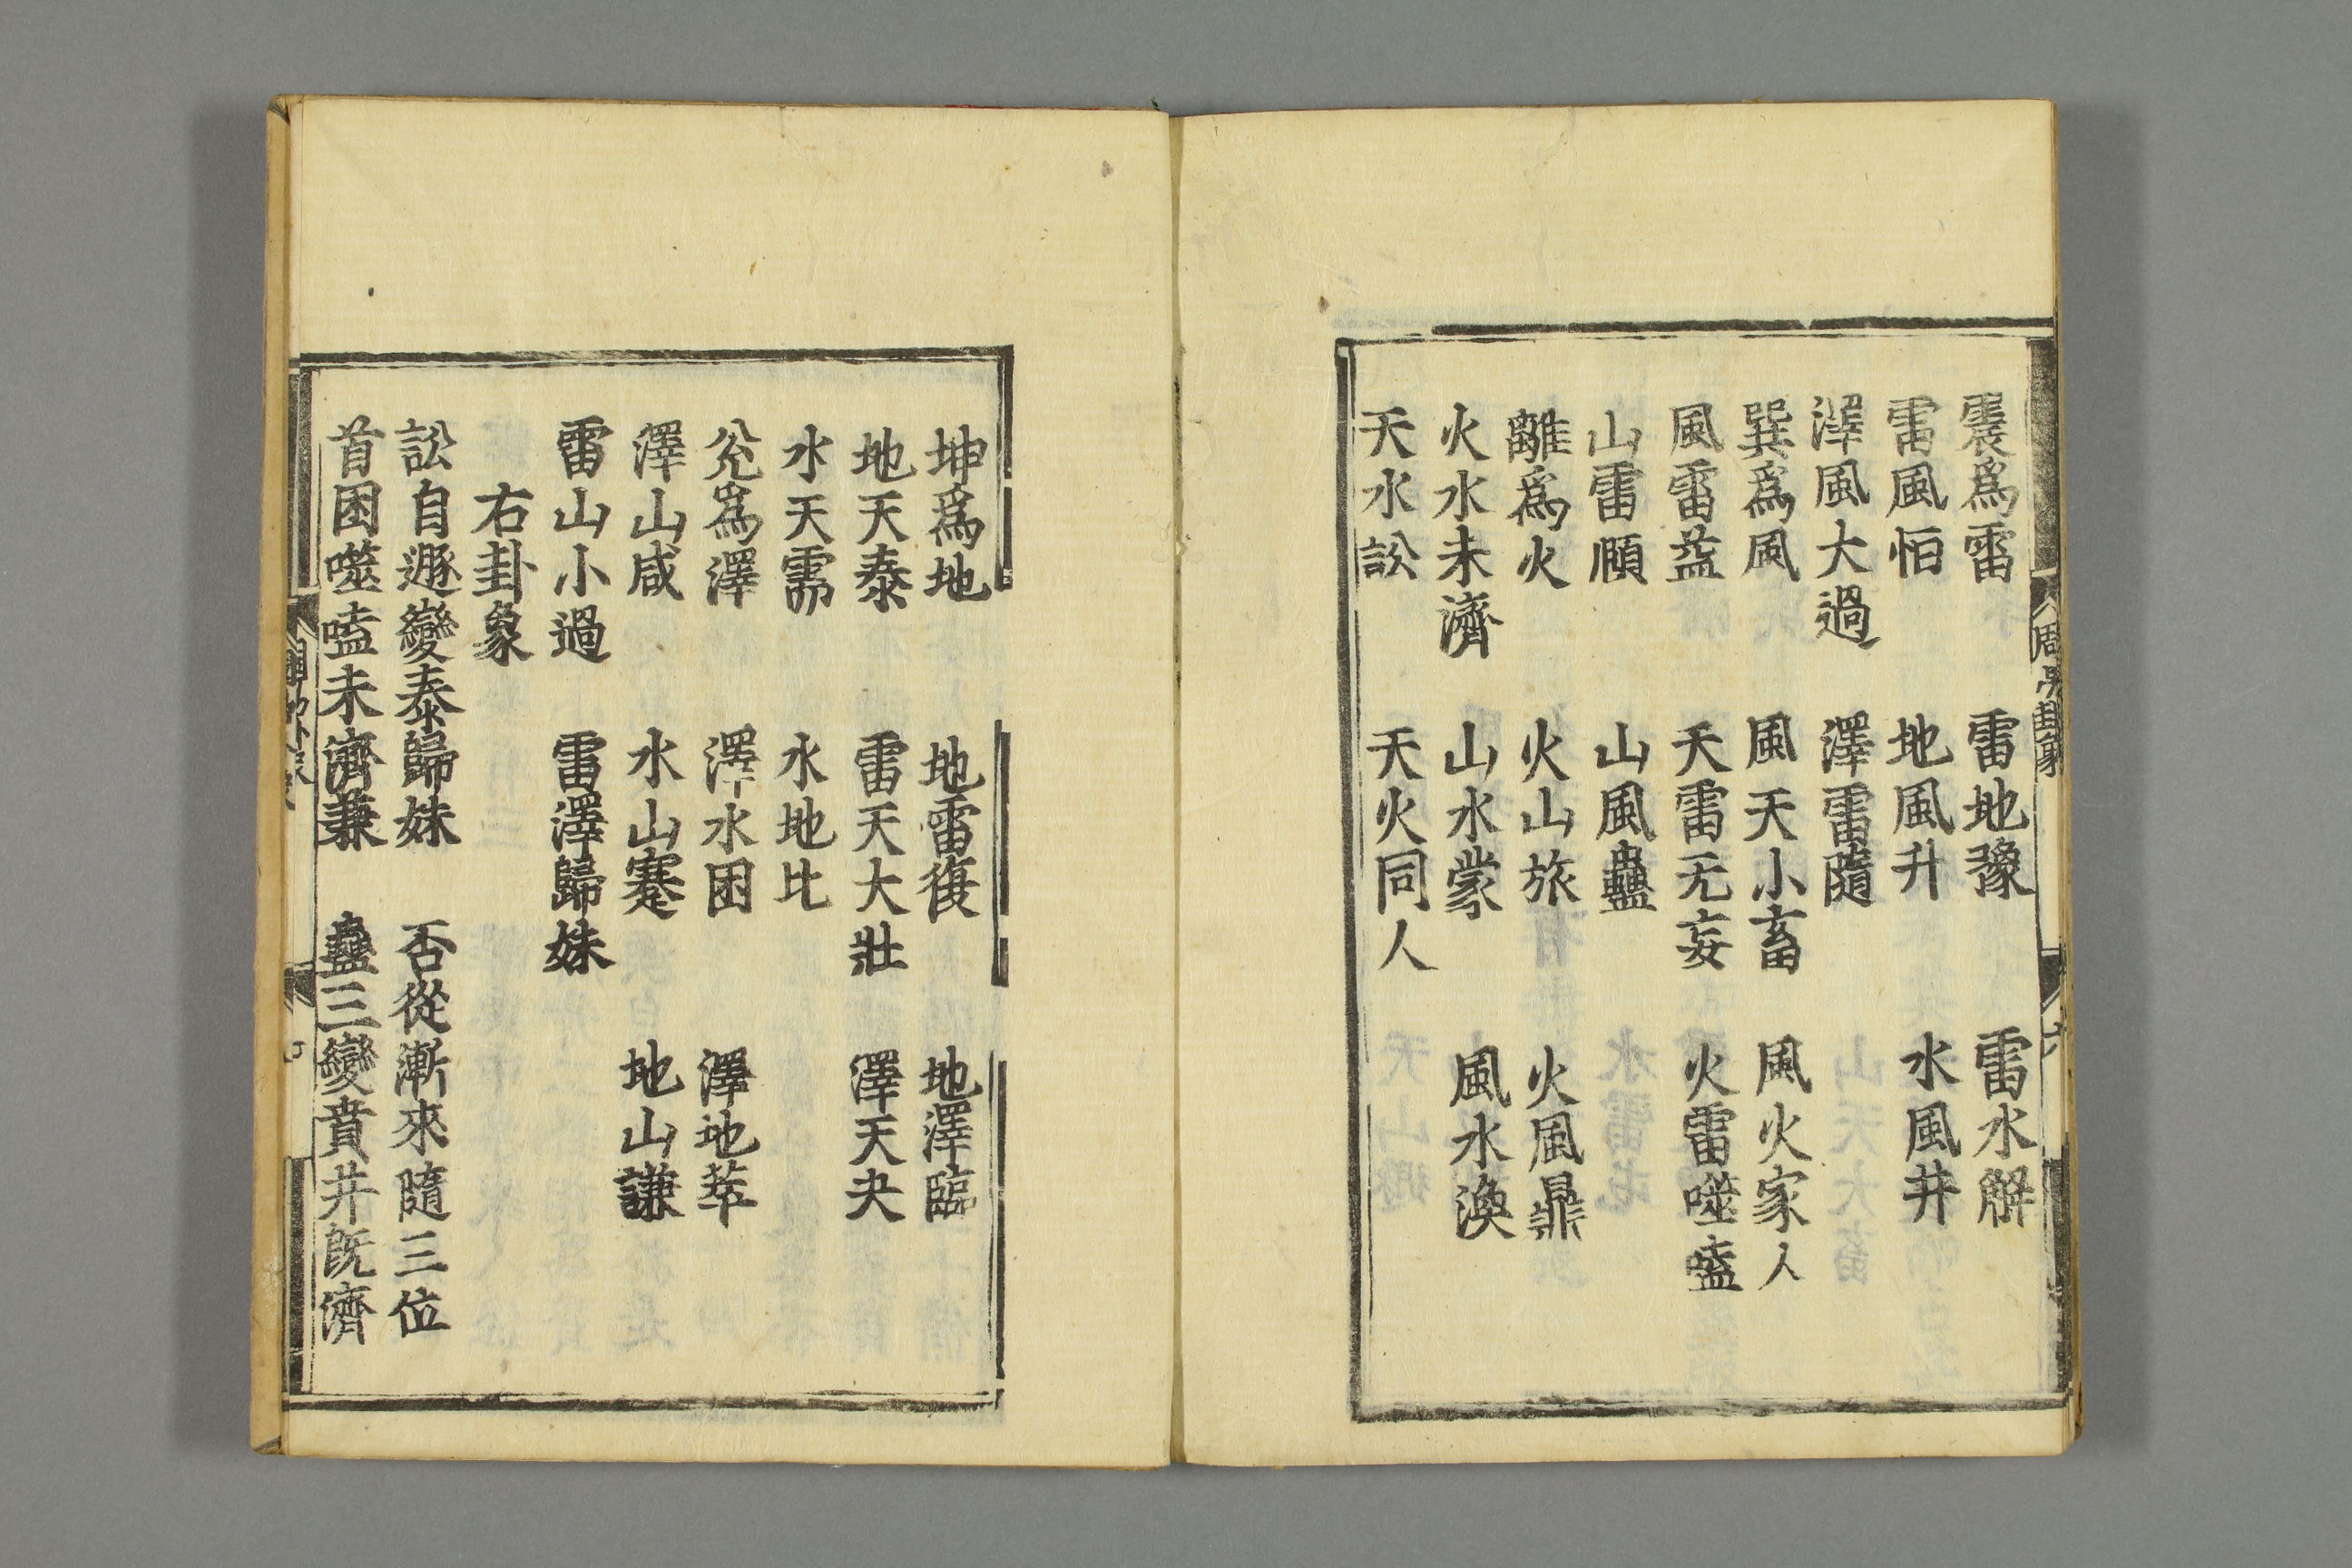 震爲雷　雷地豫　雷水解
雷風恒　地風升　水風井
澤風大過　澤雷隨
巽爲風　風天小畜　風火家人
風雷益　天雷无妄　火雷噬嗑
山雷頤　山風蠱
離爲火　火山旅　火風鼎
火水未濟　山水蒙　風水渙
天水訟　天火同人
坤爲地　地雷復　地澤臨
地天泰　雷天大壯　澤天夬
水天需　水地比
兊爲澤　澤水困　澤地萃
澤山咸　水山蹇　地山謙
雷山小過　雷澤歸妹
右卦象
訟自遯變泰歸妹　否從漸來隨三位
首困噬嗑未濟兼　蠱三變賁井旣濟